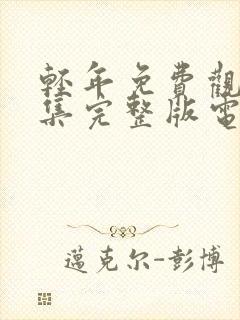 轻年免費觀
集完整版電
邁克尔-彭博